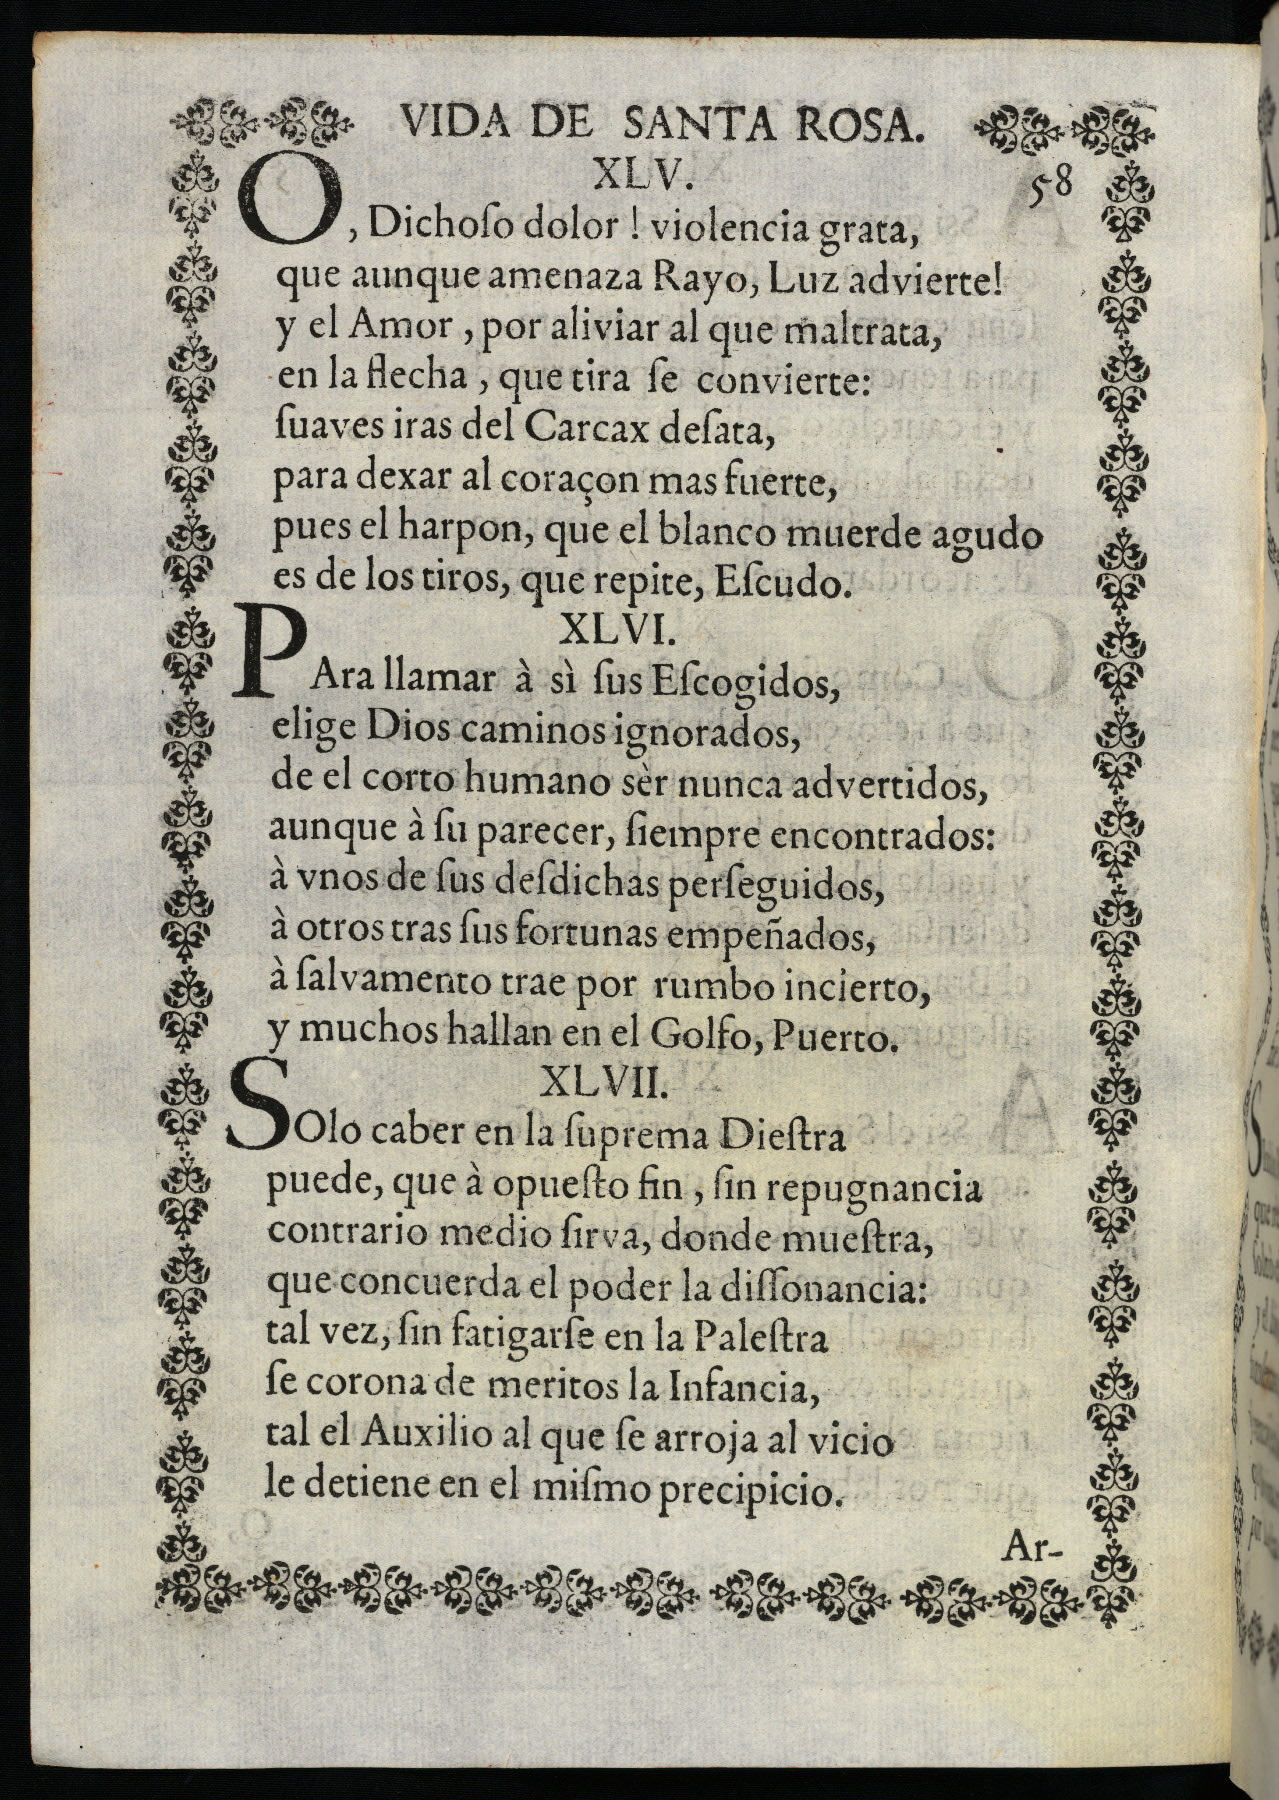 VIDA DE SANTA ROSA.
XLV.
58
O, Dichoſo dolor ! violencia grata,
que aunque amenaza Rayo, Luz advierte!
y el Amor , por aliviar al que maltrata,
en la flecha , que tira ſe convierte:
ſuaves iras del Carcax deſata,
para dexar al coraçon mas fuerte,
pues el harpon, que el blanco muerde agudo
es de los tiros, que repite, Eſcudo.
XLVI.
PAra llamar à sì ſus Eſcogidos,
elige Dios caminos ignorados,
de el corto humano sèr nunca advertidos,
aunque à ſu parecer, ſiempre encontrados:
à vnos de ſus deſdichas perſeguidos,
à otros tras ſus fortunas empeñados,
à ſalvamento trae por rumbo incierto,
y muchos hallan en el Golfo, Puerto.
XLVII.
SOlo caber en la ſuprema Dieſtra
puede, que à opueſto fin , ſin repugnancia
contrario medio ſirva, donde mueſtra,
que concuerda el poder la diſſonancia:
tal vez, ſin fatigarſe en la Paleſtra
ſe corona de meritos la Infancia,
tal el Auxilio al que ſe arroja al vicio
le detiene en el miſmo precipicio.
Ar-